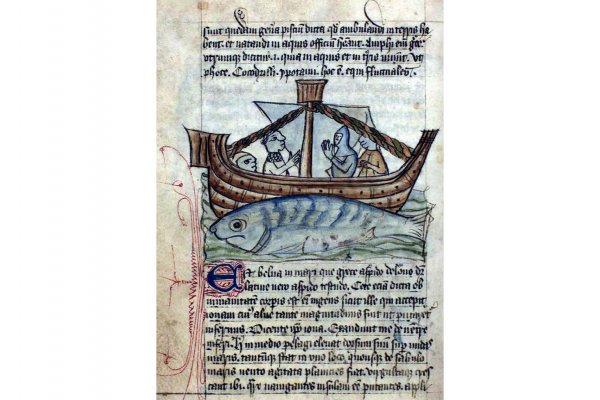 sunt quedam genera piscium dicta qd ambulandi in terris ha
bent. et natandi in aquis officium Amphi enī grece
utrumque dicitur .i. quia in aquis et in tris ut
phoce. Cocodrilli. ypotami. hoc ē. equi fluctuales.
Est belua in mari que grece aspido delone dr
latine uero aspido testudo. Cete etiā dicta ob
immanitatem corpis est eī ingens sicut ille qui excepit
ionam cui9 alue tante magnitudinis fuit ut putaret
infernus. Dicente ipō iona. Exaudiuit me de uentre
inferi. in medio pelagi eleuat dorsum suum sup undas
maris. tantūque stat in uno loco quousque de sabulo
maris uento agitata planicies fiat. cres
cant ibi. Qre nauigantes insulam eē putantes. appli